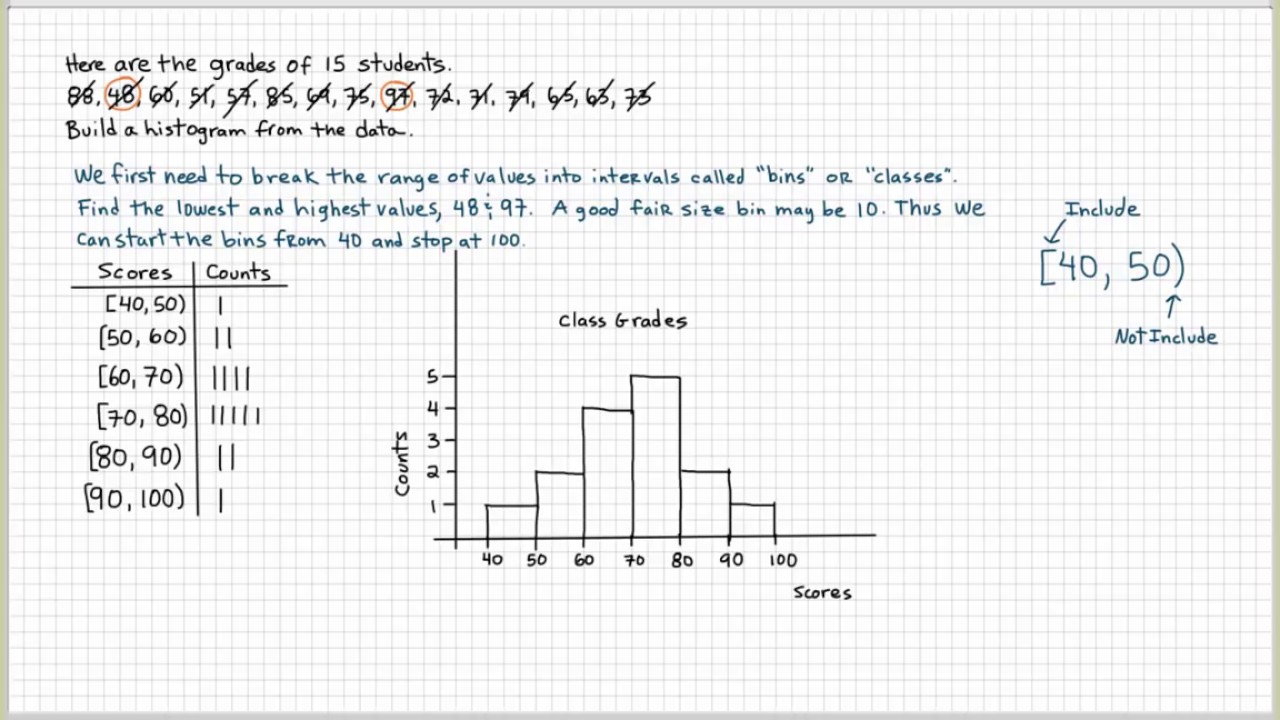 Here are the grades of 15 students.
88, 48, 60, 51, 57, 85, 69, 75, 97, 72, 71, 79, 65, 63, 73
Build a histogram from the data.
We first need to break the range of values into intervals called "bins" or "classes".
Find the lowest and highest values, 48 & 97. A good fair size bin may be 10. Thus we
can start the bins from 40 and stop at 100.
Include
[40, 50)
Not Include
Scores Counts
[40, 50) |
[50, 60) ||
[60, 70) ||||
[70, 80) |||||
[80, 90) ||
[90, 100) |
Class Grades
Counts
5
4
3
2
1
40 50 60 70 80 90 100
Scores